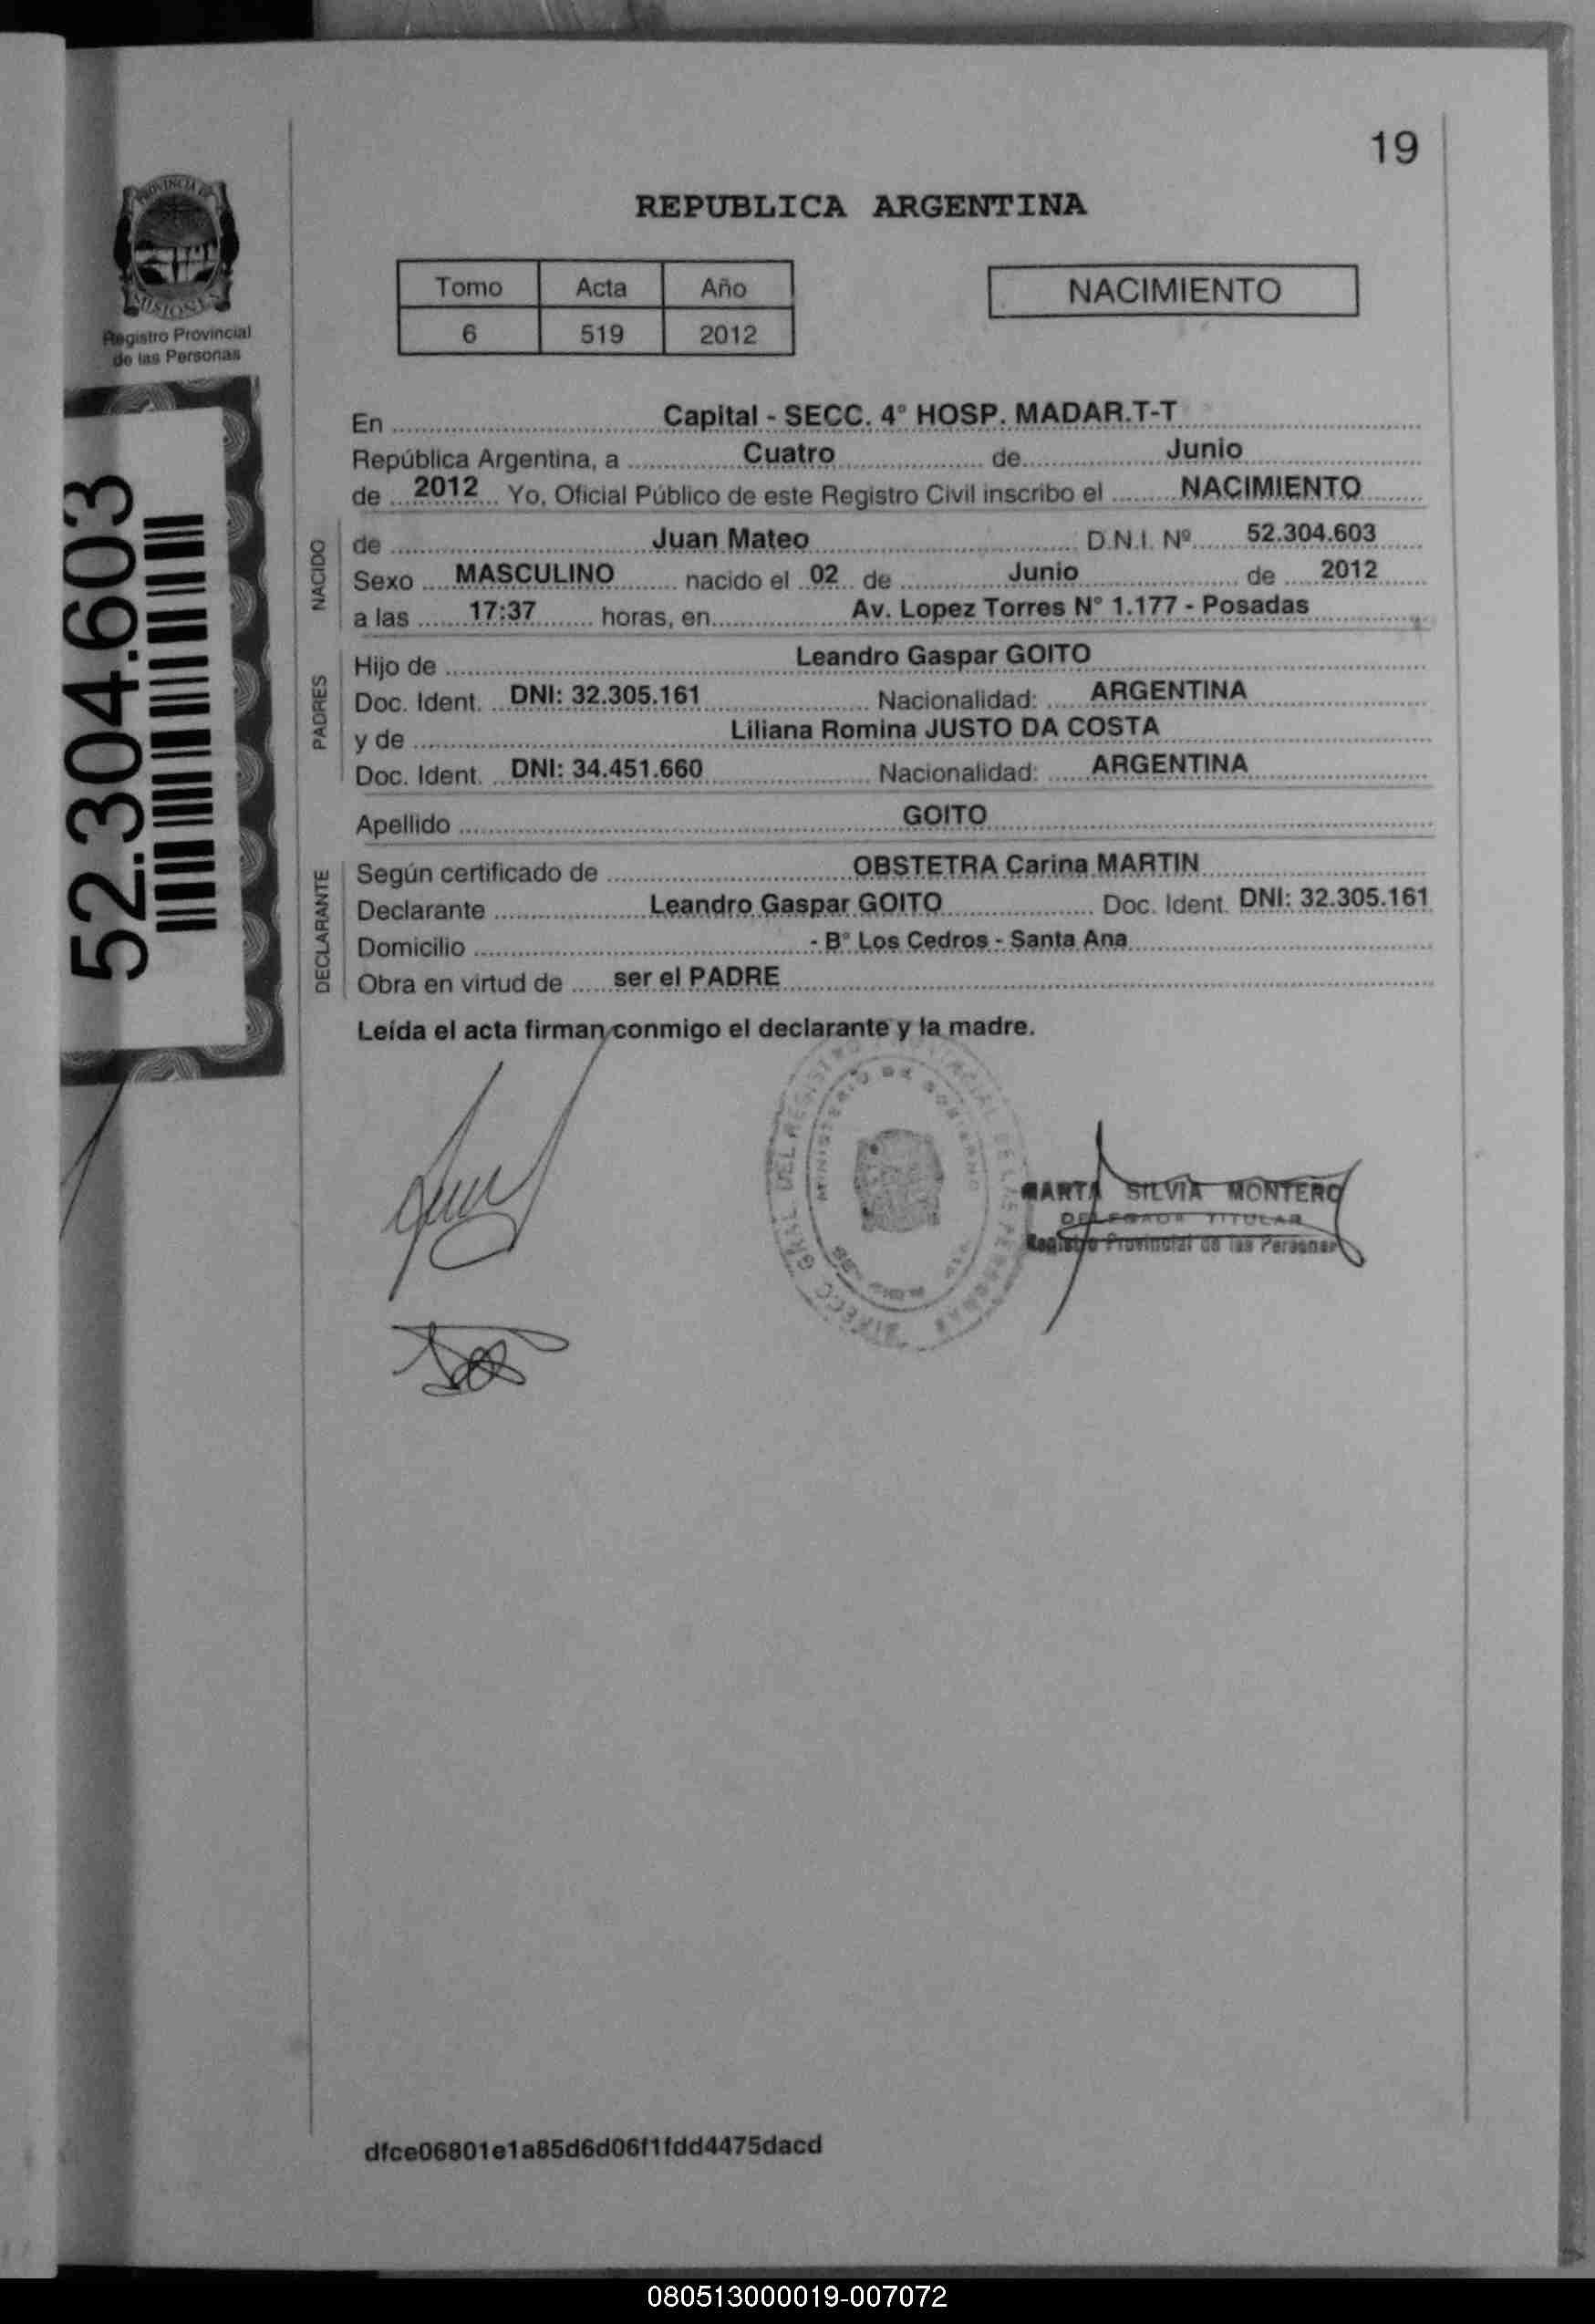 19
PROVINCIA DE
MISIONES
Registro Provincial
de las Personas
REPUBLICA ARGENTINA
Tomo Acta Año
6 519 2012
NACIMIENTO
52.304.603
En Capital - SECC. 4° HOSP. MADAR.T-T
República Argentina, a Cuatro de Junio
de 2012 Yo, Oficial Público de este Registro Civil inscribo el NACIMIENTO
NACIDO
de Juan Mateo D.N.I. Nº 52.304.603
Sexo MASCULINO nacido el 02 de Junio de 2012
a las 17:37 horas, en Av. Lopez Torres N° 1.177 - Posadas
PADRES
Hijo de Leandro Gaspar GOITO
Doc. Ident. DNI: 32.305.161 Nacionalidad: ARGENTINA
y de Liliana Romina JUSTO DA COSTA
Doc. Ident. DNI: 34.451.660 Nacionalidad: ARGENTINA
Apellido GOITO
DECLARANTE
Según certificado de OBSTETRA Carina MARTIN
Declarante Leandro Gaspar GOITO Doc. Ident. DNI: 32.305.161
Domicilio - B° Los Cedros - Santa Ana
Obra en virtud de ser el PADRE
Leída el acta firman conmigo el declarante y la madre.
MINISTERIO DE GOBIERNO
MARTA SILVIA MONTERO
DELEGADA TITULAR
Registro Provincial de las Personas
dfce06801e1a85d6d06f1fdd4475dacd
080513000019-007072